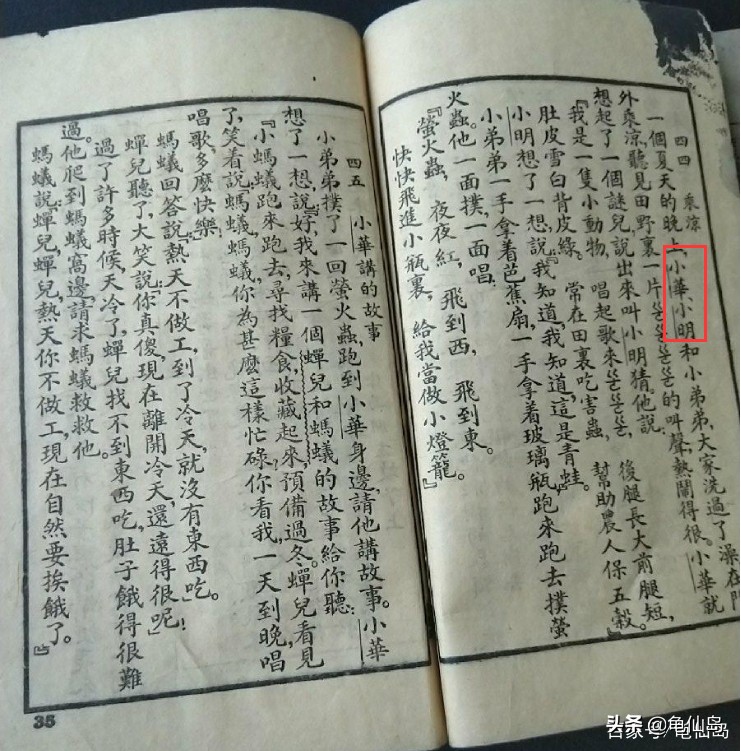 四四　乘涼
一個夏天的晚上,小華、小明和小弟弟,大家洗過了澡,在門
外乘涼,聽見田野裏一片ㄍㄨㄚㄍㄨㄚㄍㄨㄚ的叫聲,熱鬧得很。小華就
想起了一個謎兒,說出來叫小明猜。他說:
『我是一隻小動物,　唱起歌來ㄍㄨㄚㄍㄨㄚㄍㄨㄚ,　後腿長大前腿短,
肚皮雪白背皮綠。　常在田裏吃害蟲,　幫助農人保五穀。』
小明想了一想,說:『我知道,我知道,這是青蛙。』
小弟弟一手拿着芭蕉扇,一手拿着玻璃瓶,跑來跑去撲螢
火蟲。他一面撲,一面唱:
『螢火蟲,　夜夜紅,　飛到西,　飛到東。
快快飛進小瓶裏,　給我當做小燈籠。』
四五　小華講的故事
小弟弟撲了一回螢火蟲,跑到小華身邊,請他講故事。小華
想了一想,說:『好,我來講一個蟬兒和螞蟻的故事給你聽:
『小螞蟻跑來跑去,尋找糧食,收藏起來,預備過冬。蟬兒看見
了,笑着說:『螞蟻,螞蟻,你為甚麽這樣忙碌,你看我一天到晚唱
唱歌,多麽快樂!』
螞蟻回答說:『熱天不做工,到了冷天,就沒有東西吃。』
蟬兒聽了,大笑說:『你真傻,現在離開冷天,還遠得很呢!』
過了許多時候,天冷了,蟬兒找不到東西吃,肚子餓得很難
過。他爬到螞蟻窩邊,請求螞蟻救救他。
螞蟻說:『蟬兒,蟬兒,熱天你不做工,現在自然要挨餓了。』』
35
头条@龟仙岛
百家号/龟仙岛